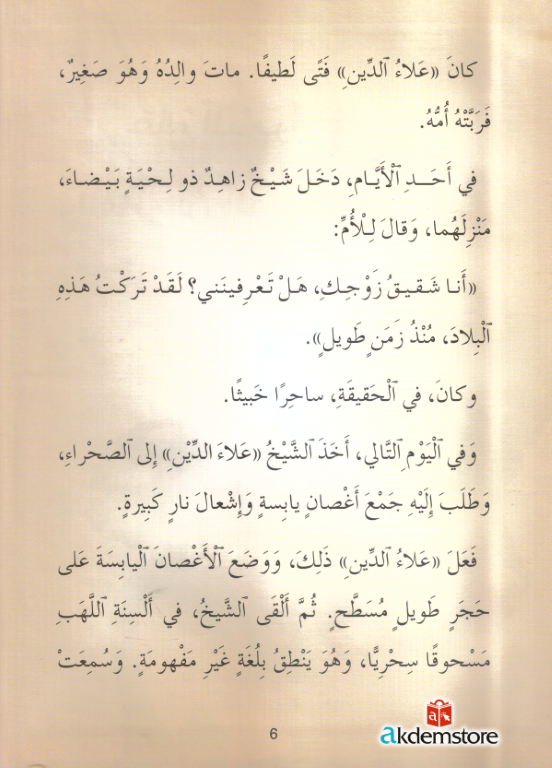 كانَ «عَلاءُ ٱلدِّينِ» فَتًى لَطيفًا. ماتَ والِدُهُ وَهُوَ صَغِيرٌ،
فَرَبَّتْهُ أُمُّهُ.
في أَحَدِ ٱلْأَيَّامِ، دَخَلَ شَيْخٌ زاهِدٌ ذو لِحْيَةٍ بَيْضاءَ،
مَنْزِلَهُما، وَقالَ لِلْأُمِّ:
«أَنا شَقيقُ زَوْجِكِ، هَلْ تَعْرِفينَني؟ لَقَدْ تَرَكْتُ هَذِهِ
ٱلْبِلادَ، مُنْذُ زَمَنٍ طَويلٍ».
وكانَ، في ٱلْحَقيقَةِ، ساحِرًا خَبيثًا.
وَفي ٱلْيَوْمِ ٱلتَّالي، أَخَذَ ٱلشَّيْخُ «عَلاءَ ٱلدِّيْنِ» إِلى ٱلصَّحْراءِ،
وَطَلَبَ إِلَيْهِ جَمْعَ أَغْصانٍ يابِسةٍ وَإِشْعالَ نارٍ كَبيرةٍ.
فَعَلَ «عَلاءُ ٱلدِّينِ» ذَلِكَ، وَوَضَعَ ٱلْأَغْصانَ ٱلْيابِسَةَ عَلى
حَجَرٍ طَويلٍ مُسَطَّحٍ. ثُمَّ أَلْقَى ٱلشَّيخُ، في أَلْسِنَةِ ٱللَّهَبِ
مَسْحوقًا سِحْرِيًّا، وَهُوَ يَنْطِقُ بِلُغَةٍ غَيْرِ مَفْهومَةٍ. وَسُمِعَتْ
6
akdemstore